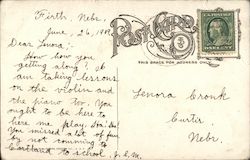 Firth, Nebr.
June, 26, 1909.
Dear Lenora;
How how you
getting along? I
am taking lessons
on the violin and
the piano too. You
ought to be here to
here me play.
You missed a lot of fun
by not comming to
Cortland to school. J.E.M.
POST CARD
THIS SPACE FOR ADDRESS ONLY
Lenora Cronk
Curtis
Nebr.